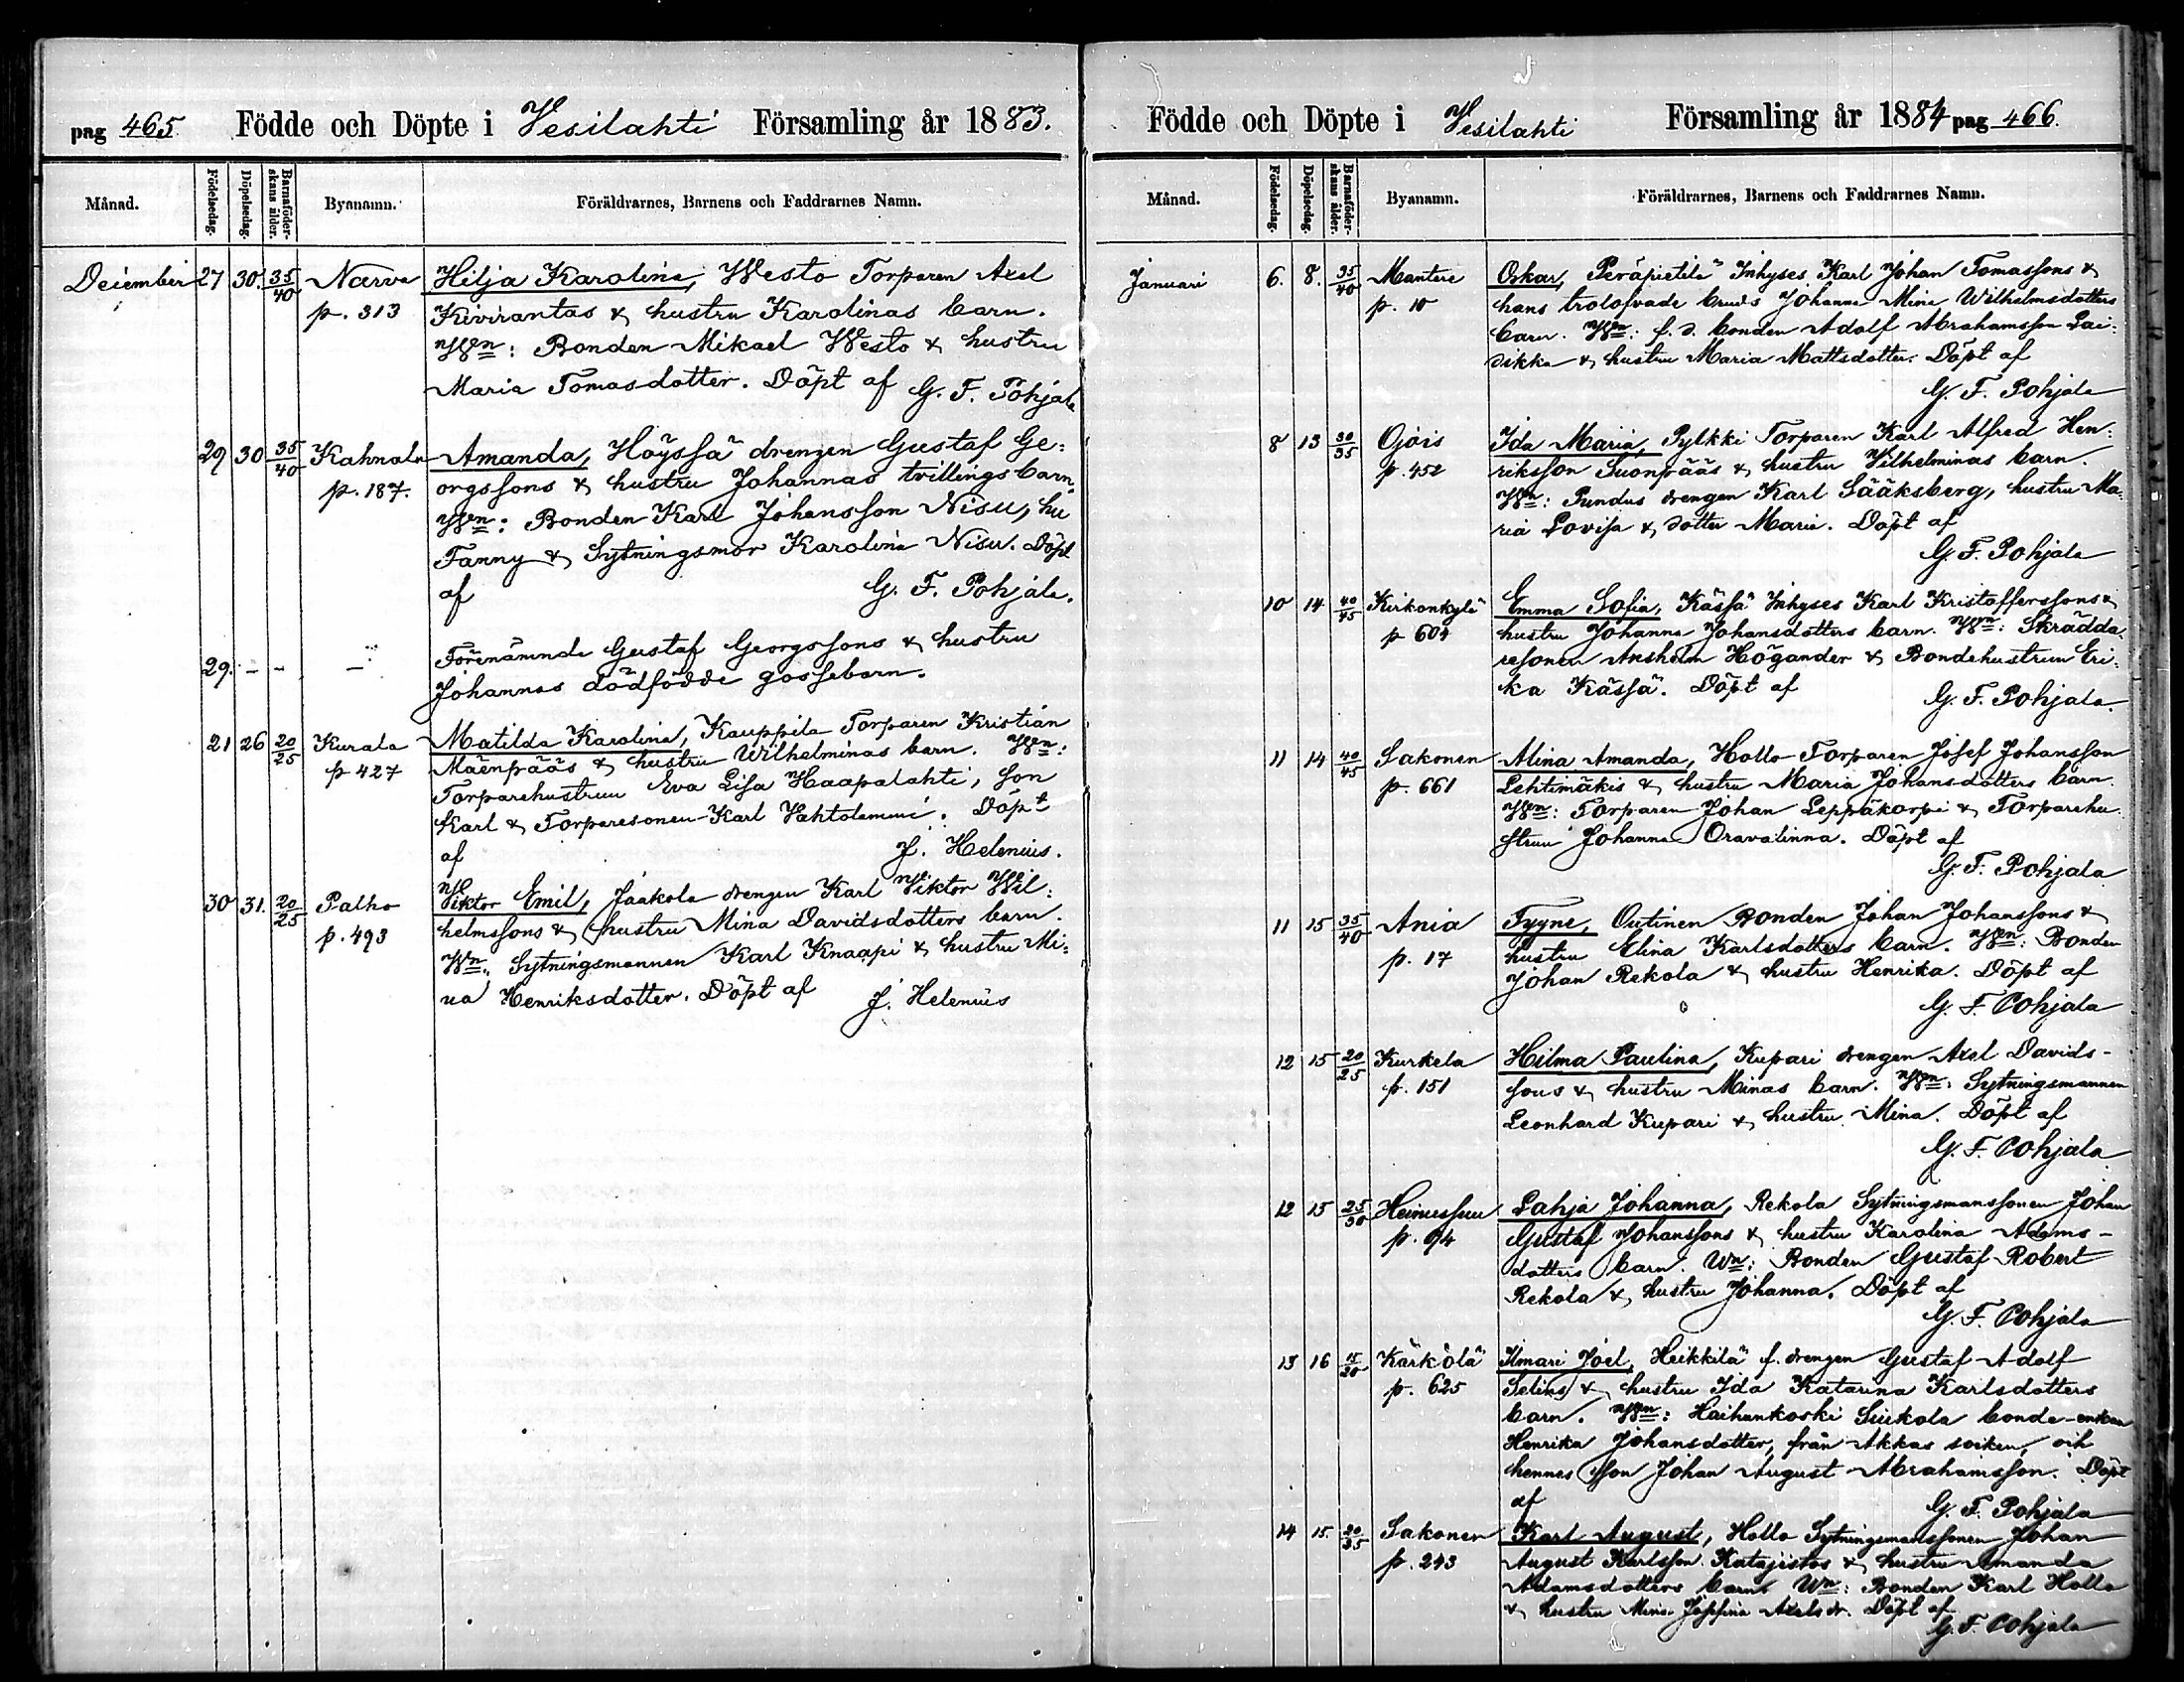 pag 465. Födde och Döpte i Vesilahti Församling år 1883.
Månad. Födelsedag. Döpelsedag. Barnaföderskans ålder. Byanamn. Föräldrarnes, Barnens och Faddrarnes Namn.
December 27 30. 35/40 Narva Hilja Karolina, Westo Torparen Axel
p. 313 Kivirantas & hustru Karolinas barn.
Wn: Bonden Mikael Westo & hustru
Maria Tomasdotter. Döpt af G. F. Pohjala
29 30 35/40 Kahnala Amanda, Höyssä drengen Gustaf Ge:
p. 187. orgssons & hustru Johannas tvillingsbarn.
Wn: Bonden Karl Johansson Nisu, hu
Fanny & Sytningsmor Karolina Nisu. Döpt
af G. F. Pohjala.
29. - - - Förenämnde Gustaf Georgssons & hustru
Johannas dödfödde gossebarn.
21 26 20/25 Kurala Matilda Karolina, Kauppila Torparen Kristian
p. 427 Mäenpääs & hustru Wilhelminas barn. Wn:
Torparehustrun Eva Lisa Haapalahti, son
Karl & Torparesonen Karl Vahtolammi. Döpt
af J. Helenius.
30 31. 20/25 Palho Viktor Emil, Jaakola drengen Karl Viktor Wil:
p. 493 helmssons & hustru Mina Davidsdotters barn.
Wn: Sytningsmannen Karl Knaapi & hustru Mi:
na Henriksdotter. Döpt af J. Helenius
Födde och Döpte i Vesilahti Församling år 1884 pag 466.
Månad. Födelsedag. Döpelsedag. Barnaföderskans ålder. Byanamn. Föräldrarnes, Barnens och Faddrarnes Namn.
Januari 6. 8. 35/40 Mantere Oskar, Peräpietilä Inhyses Karl Johan Tomassons &
p. 10 hans trolofvade bruds Johanna Mina Wilhelmsdotters
barn. Wn: f. d. bonden Adolf Abrahamsson Lai:
dikka & hustru Maria Mattsdotter. Döpt af
G. F. Pohjala
8 13 30/35 Ojois Ida Maria, Pylkki Torparen Karl Alfred Hen:
p. 452 riksson Suonpääs & hustru Vilhelminas barn.
Wn: Pundus drengen Karl Sääksberg, hustru Ma:
ria Lovisa & dotter Maria. Döpt af
G. F. Pohjala
10 14 40/45 Kirkonkylä Emma Sofia, Kässä Inhyses Karl Kristofferssons &
p 604 hustru Johanna Johansdotters barn. Wn: Skrädda
resonen Anshelm Högander & Bondehustrun Eri:
ka Kässä. Döpt af G. F. Pohjala.
11 14 40/45 Sakonen Alina Amanda, Hollo Torparen Josef Johansson
p. 661 Lehtimäkis & hustru Maria Johansdotters barn.
Wn: Torparen Johan Leppäkorpi & Torparehu
strun Johanna Oravalinna. Döpt af
G. F. Pohjala
11 15 35/40 Ania Tyyne, Outinen Bonden Johan Johanssons &
p. 17 hustru Elina Karlsdotters barn. Wn: Bonden
Johan Rekola & hustru Henrika. Döpt af
G. F. Pohjala
12 15 20/25 Kurkela Hilma Paulina, Kupari drengen Axel Davids-
p. 151 sons & hustru Minas barn. Wn: Sytningsmannen
Leonhard Kupari & hustru Mina. Döpt af
G. F. Pohjala
12 15 25/30 Heinussuu Lahja Johanna, Rekola Sytningsmanssonen Johan
p. 94 Gustaf Johanssons & hustru Karolina Adams-
dotters barn. Wn: Bonden Gustaf Robert
Rekola & hustru Johanna. Döpt af
G. F. Pohjala
13 16 15/20 Kärkölä Ilmari Joel, Heikkilä f. drengen Gustaf Adolf
p. 625 Selins & hustru Ida Katarina Karlsdotters
barn. Wn: Haihunkoski Siukola bonde-enkan
Henrika Johansdotter, från Akkas socken, och
hennes son Johan August Abrahamsson. Döpt
af G. F. Pohjala
14 15. Sakonen Karl August, Hollo Sytningsmanssonen Johan
p. 243 August Karlsson Katajistos & hustru Amanda
Adamsdotters barn. Wn: Bonden Karl Hollo
& hustru Mina Josefina Axelsdr. Döpt af
G. F. Pohjala